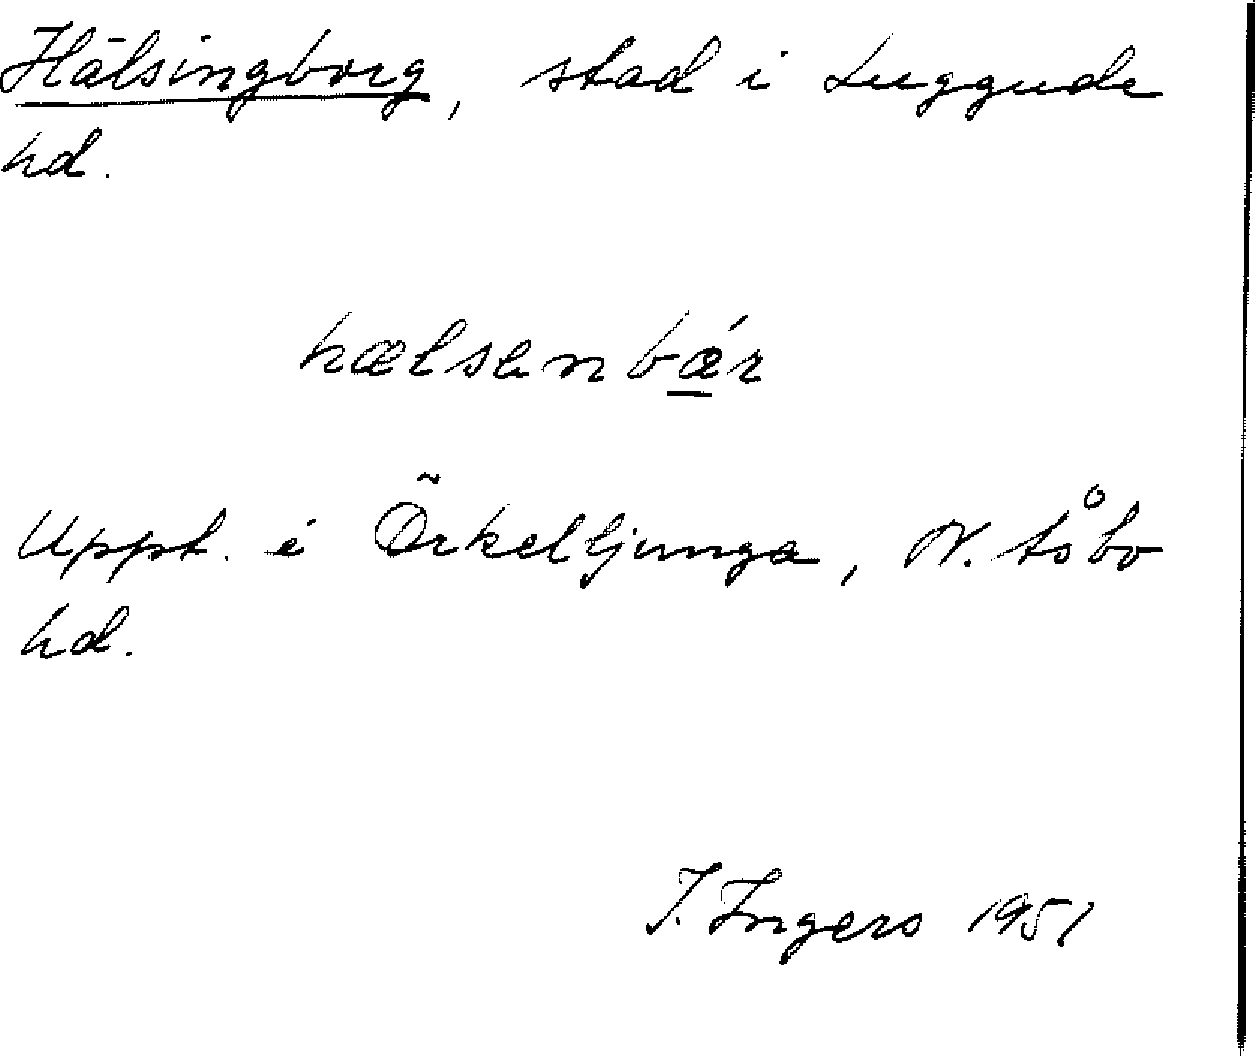 Hälsingborg, stad i Luggude
hd.
hælsenbǽr
Uppt. i Örkelljunga, N. Åsbo
hd.
I. Ingers 1951